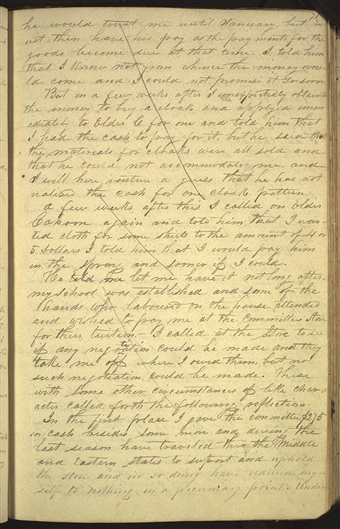 he would trust me until January but
not then have his pay as the payments for the
goods become due at that time. I told him
that I know not from whence the money wou
ld come and I could not promise it so soon
But in a few weeks after I unexpectedly obtained
the money to buy a cloak and applyed imm
ediatly to Elder C for one and told him that
I had the cash to pay for it, but he said that
the materials for cloaks were all sold and
that he could not accommodate me, and
I will here venture a guess that he has not
realised the cash for one cloak pattern.
A few weeks after this I called on elder
Cahoon again and told him that I wan
ted cloth for some shirts to the amount of 4 or
5 Dollars I told him that I would pay him
in the spring and sooner if I could.
He told me let me have it not long after,
my school was established and some of the
hands who laboured on the house attended
and wished to pay me at the Committee Store
for their tuition. I called at the Store to see
if any negotiation could be made and they
take me off where I owed them, but no
such negotiation could be made. These
with some other circumstances of like char
acter called forth the following reflections.
In the first place I gave the committee $275
in cash besides some more and during the
last season have traveled thro the Middle
and Eastern states to suport and uphold
the store and in so doing have reduced my
self to nothing, in a pecuniary point. Under